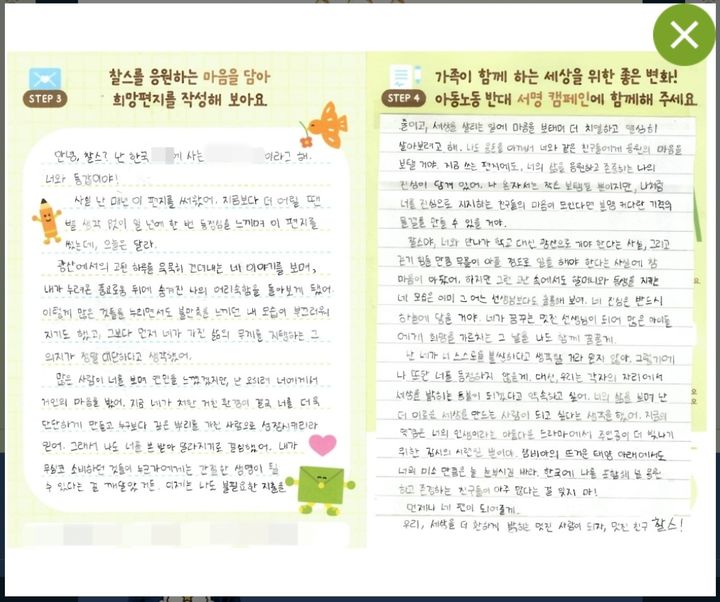 STEP 3
찰스를 응원하는 마음을 담아
희망편지를 작성해 보아요
안녕, 찰스? 난 한국 에 사는 이라고 해.
너와 동갑이야!
사실 난 매년 이 편지를 써왔어. 지금보다 더 어릴 땐
별 생각 없이 일 년에 한 번 동정심을 느끼며 이 편지를
썼는데, 오늘은 달라.
광산에서의 고된 하루를 묵묵히 견뎌내는 네 이야기를 보며,
내가 누려온 풍요로움 뒤에 숨겨진 나의 어리석함을 돌아보게 됐어.
이렇게 많은 것들을 누리면서도 불만족을 느끼던 내 모습이 부끄러워
지기도 했고, 그보다 먼저 네가 가진 삶의 무게를 지탱하는 그
의지가 정말 대단하다고 생각했어.
많은 사람이 너를 보며 연민을 느끼겠지만, 난 오히려 너에게서
거인의 마음을 봤어. 지금 네가 처한 거친 환경이 결국 너를 더욱
단단하게 만들고 누구보다 깊은 뿌리를 가진 사람으로 성장시키리라
믿어. 그래서 나도 너를 본받아 달라지기로 결심했어. 내가
무심코 소비하던 것들이 누군가에게는 간절한 생명이 될
수 있다는 걸 깨달았거든. 이제는 나도 불필요한 지출을
STEP 4
가족이 함께 하는 세상을 위한 좋은 변화!
아동노동 반대 서명 캠페인에 함께해 주세요
줄이고, 세상을 살리는 일에 마음을 보태며 더 치열하고 열심히
살아보려고 해. 나도 용돈을 아껴서 너와 같은 친구들에게 응원의 마음을
보낼 거야. 지금 쓰는 편지에도, 너의 삶을 응원하고 존중하는 나의
진심이 담겨 있어. 나 혼자서는 작은 보탬일 뿐이지만, 나처럼
너를 진심으로 지지하는 친구들의 마음이 모인다면 분명 커다란 기적의
물결을 만들 수 있을 거야.
찰스야, 너와 만나가 학교 대신 광산으로 가야 한다는 사실, 그리고
걷기 힘들 만큼 무릎이 아플 정도로 일을 해야 한다는 사실에 참
마음이 아팠어. 하지만 그런 고난 속에서도 할머니와 동생을 지키는
네 모습은 이미 그 어느 선생님보다도 훌륭해 보여. 네 진심은 반드시
하늘에 닿을 거야. 네가 꿈꾸던 멋진 선생님이 되어 많은 아이들
에게 희망을 가르치는 그 날을 나도 함께 꿈꿀게.
난 네가 네 스스로를 불쌍하다고 생각할 거라 믿지 않아. 그렇기에
나 또한 너를 동정하지 않을게. 대신, 우리는 각자의 자리에서
세상을 밝히는 등불이 되겠다고 약속하고 싶어. 너의 삶을 보며 난
더 이로운 세상을 만드는 사람이 되고 싶다는 생각을 했어. 지금의
역경은 너의 인생이라는 아름다운 드라마에서 주인공이 더 빛나기
위한 잠시의 시련일 뿐이야. 잠비아의 뜨거운 태양 아래에서도
너의 미소 만큼은 늘 눈부시길 바라. 한국에 나를 포함해 널 응원
하고 존경하는 친구들이 아주 많다는 걸 잊지 마!
언제나 네 편이 되어줄게.
우리, 세상을 더 환하게 밝히는 멋진 사람이 되자, 멋진 친구 찰스!